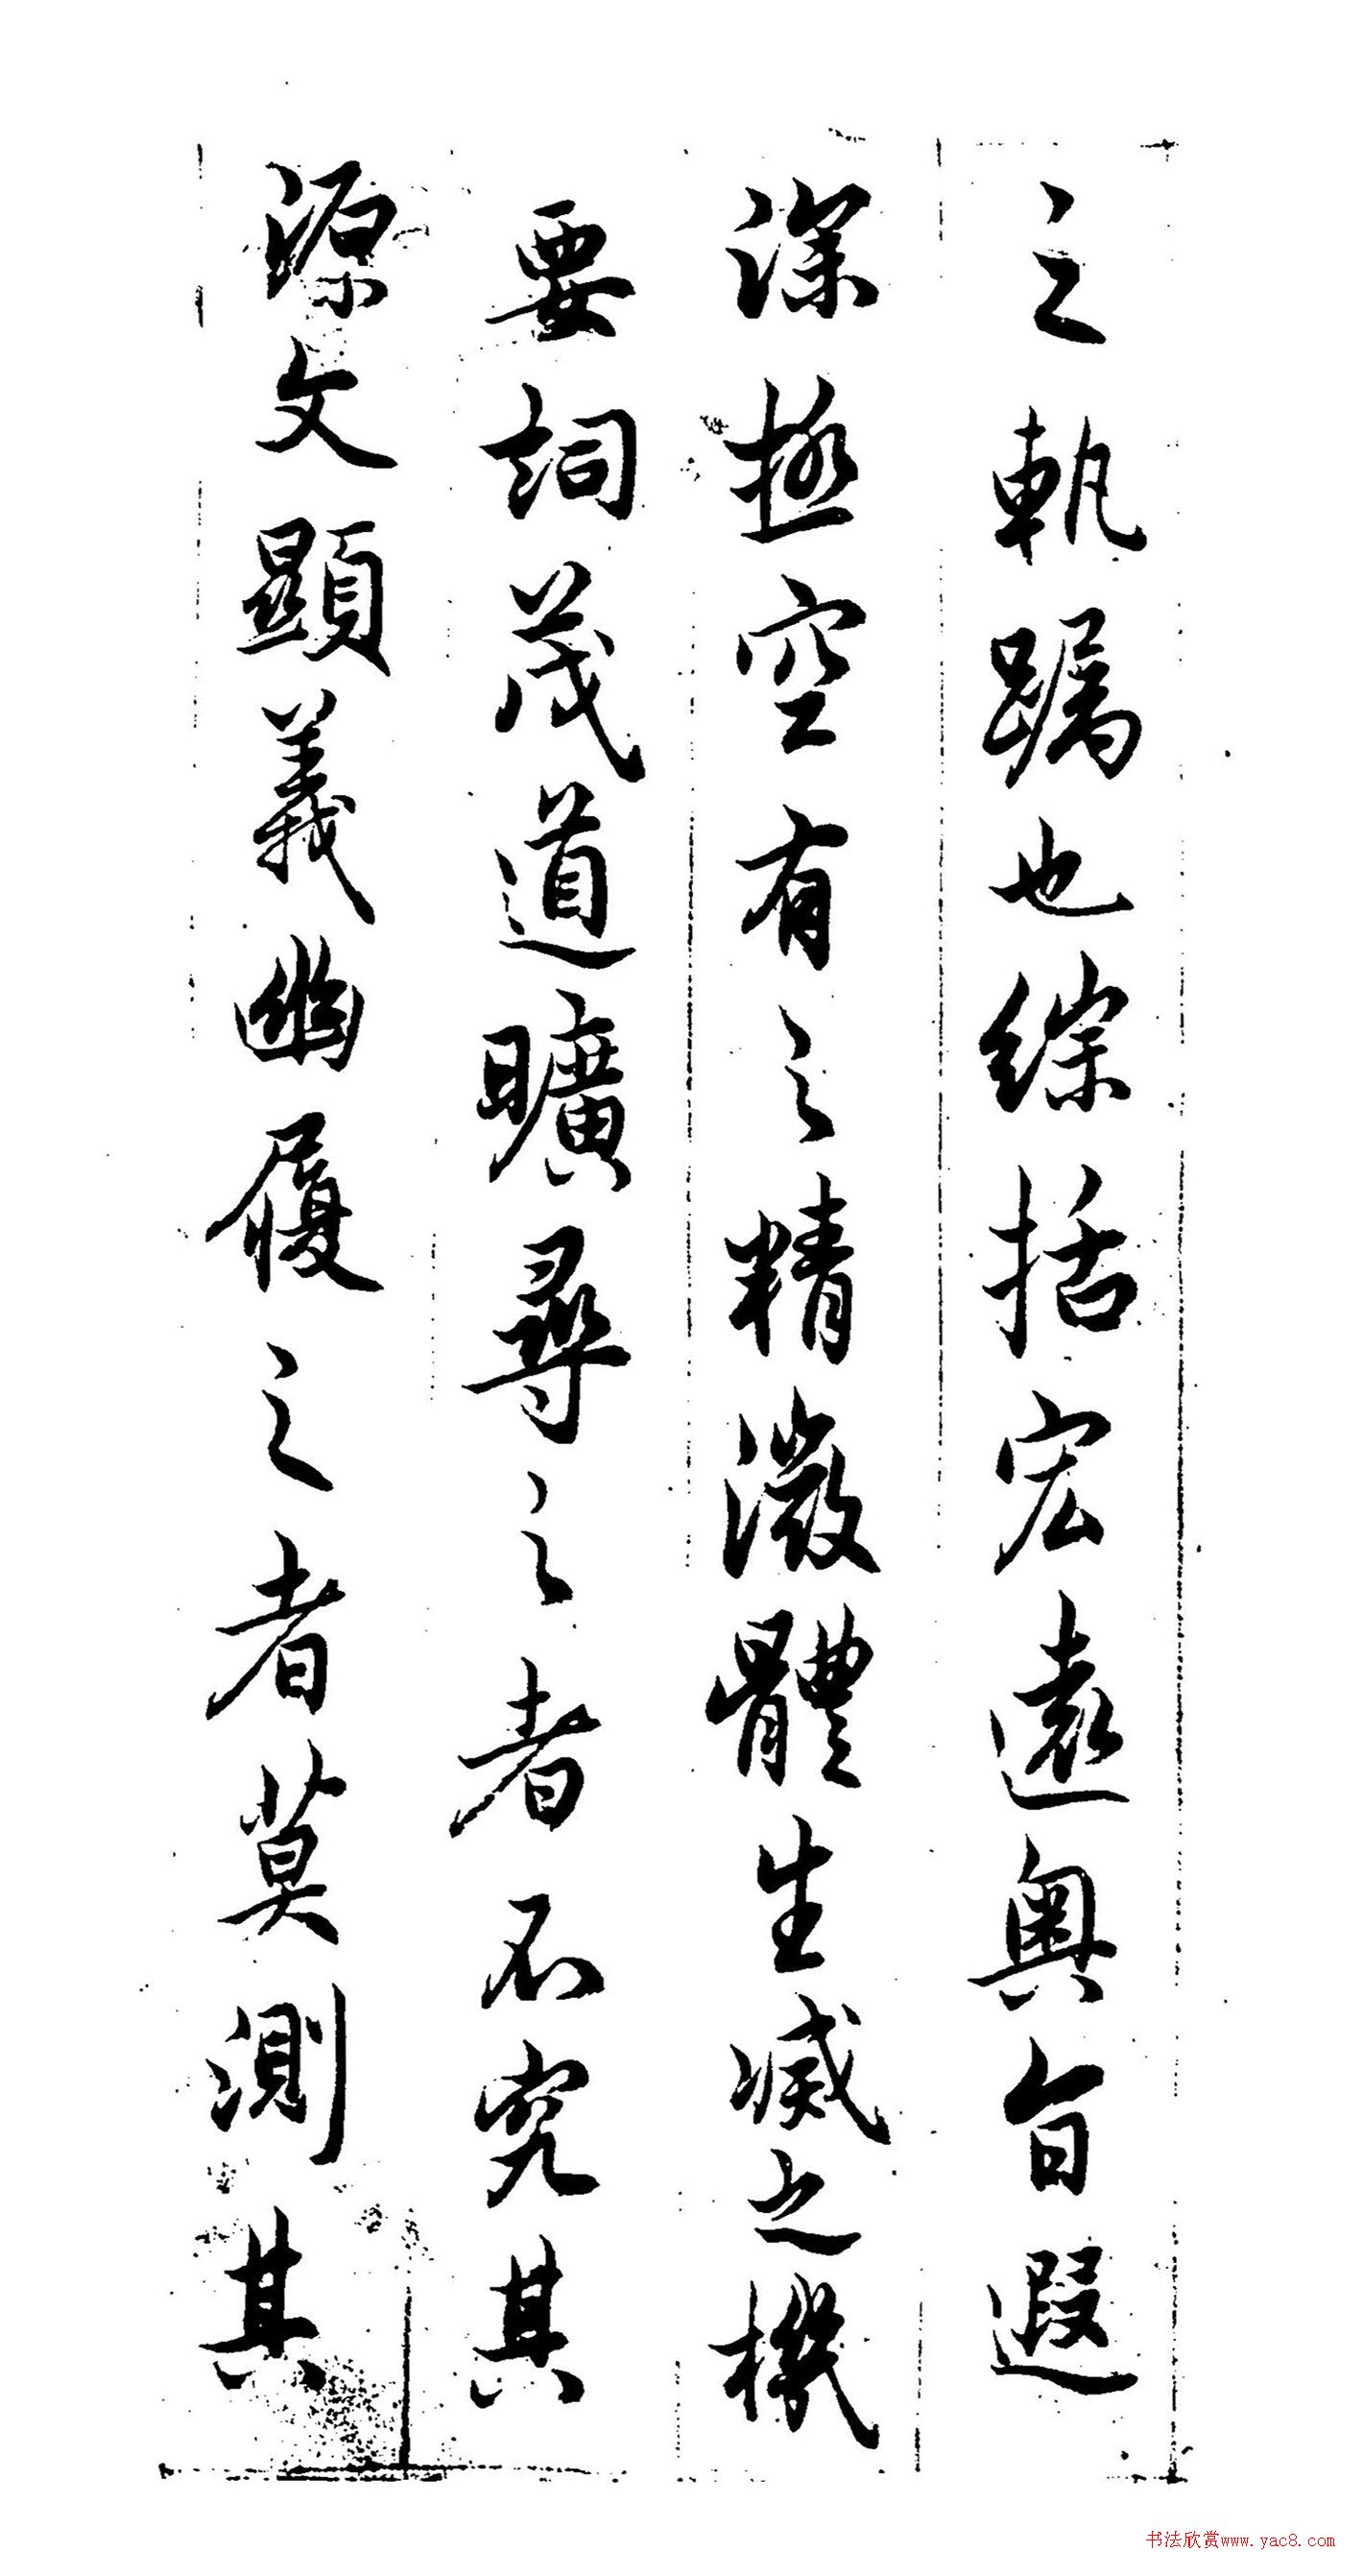 之軌躅也綜括宏遠奧旨遐
深極空有之精微體生滅之機
要詞茂道曠尋之者不究其
源文顯義幽履之者莫測其
书法欣赏www.yac8.com